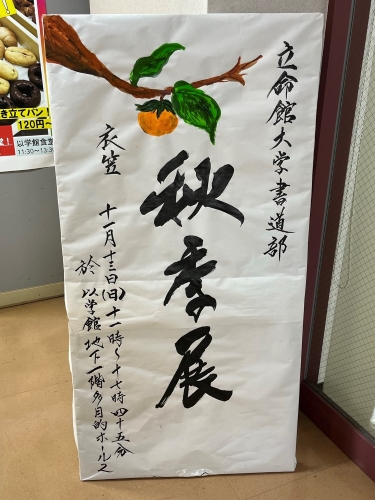 立命館大学書道部
秋季展
衣笠
十一月十三日(日)十一時〜十七時四十五分
於 以学館 地下一階多目的ホール2
き立てパン!
120円〜
以学館食堂
11:30〜13:30